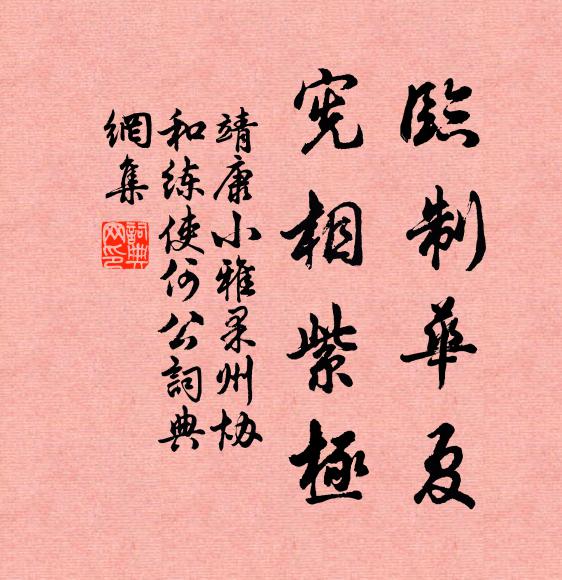 臨制華夏
宪相紫極
靖康小雅果州协
和练使何公詞典
網集
詞典
网印